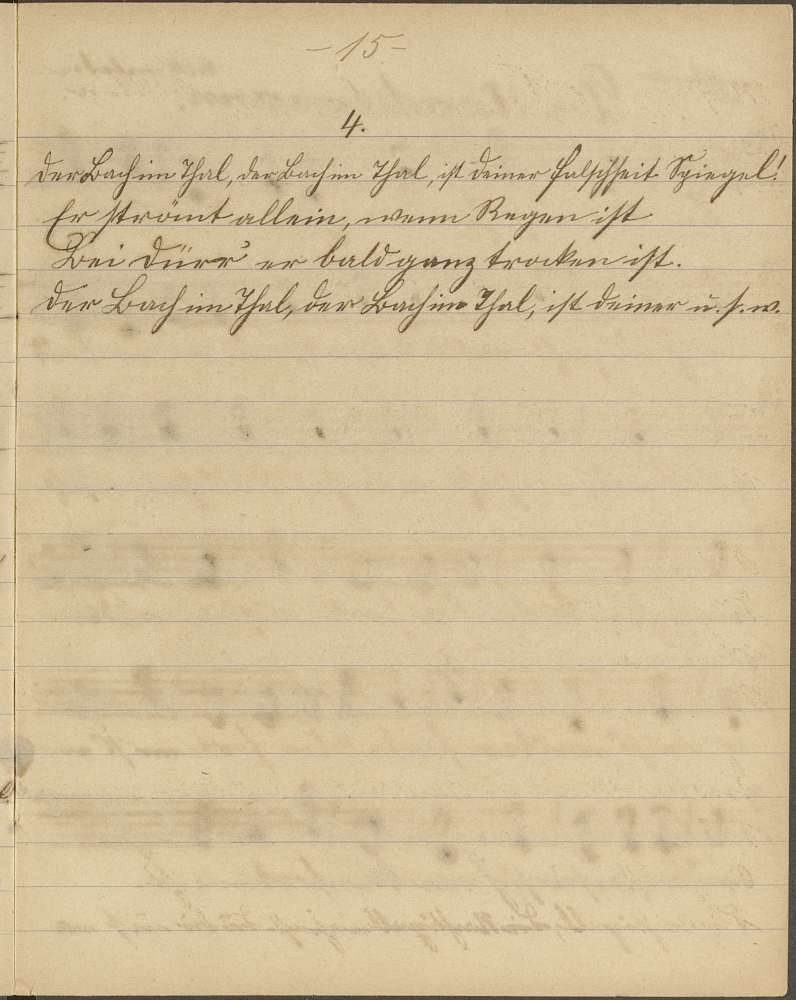 - 15 -
4.
Der Bach im Thal, der Bach im Thal, ist deiner Falschheit Spiegel!
Er strömt allein, wenn Regen ist
Bei Dürr' er bald ganz trocken ist.
Der Bach im Thal, der Bach im Thal, ist deiner u. s. w.